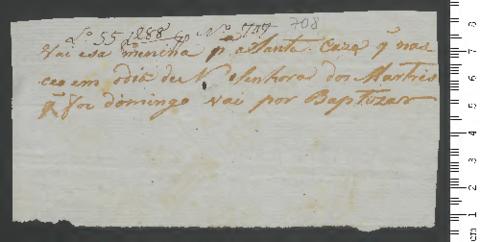 Lº 55 1288 Nº 707 708
Vai esa menina pª a Santa Caza q̃ nas
ceo em o dia de N Senhora dos Martres
q̃ foi domingo vai por Baptizar
8
7
6
5
4
3
2
1
cm